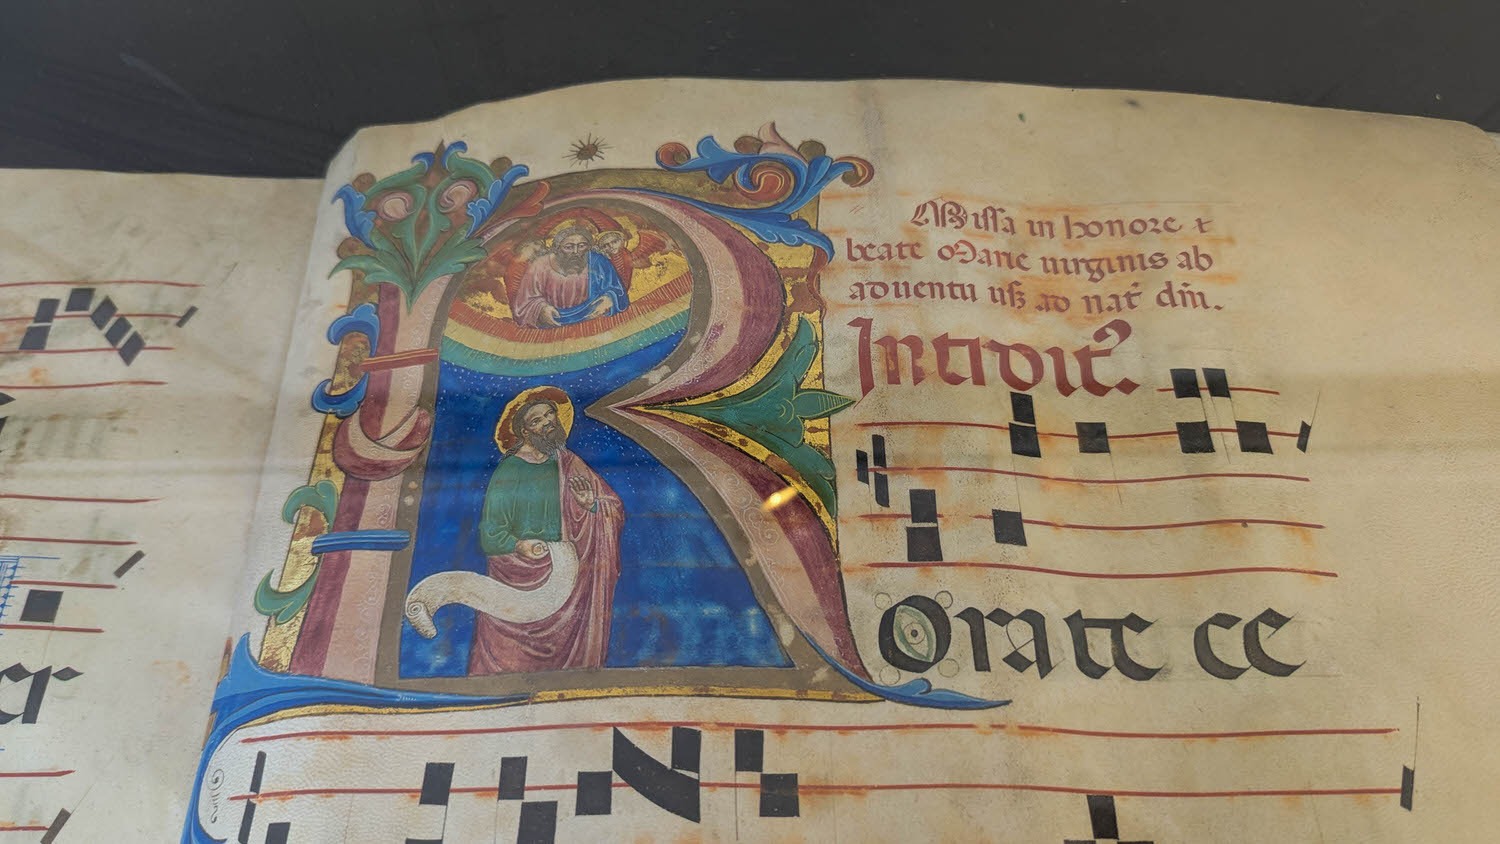 Missa in honore et
beate Marie uirginis ab
aduentu usq ad nat dni.
Introit.
Rorate ce
er